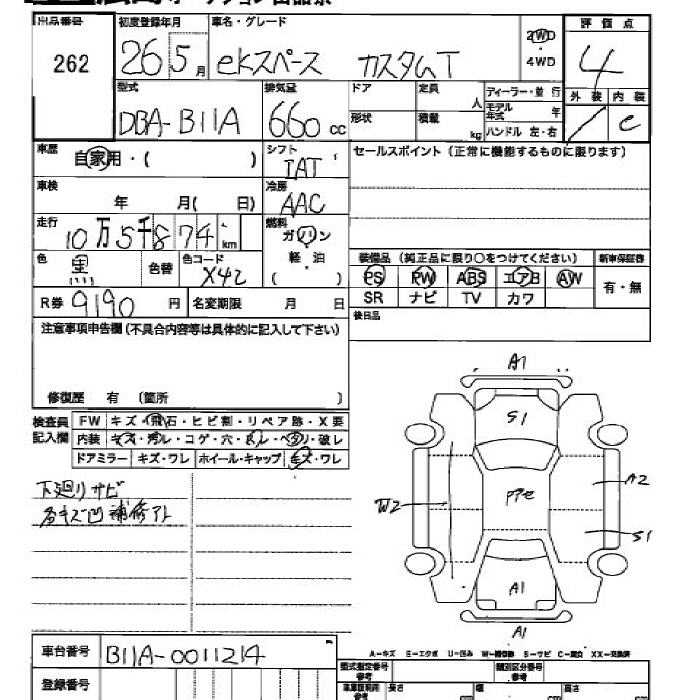 出品番号 初度登録年月 車名・グレード 評価点
262 26 5月 ekスペース カスタムT 2WD・4WD 4
型式 排気量 ドア 定員 人 ディーラー・並行 外装 内装
DBA-B11A 660cc 形状 積載 kg モデル年式 年 ハンドル 左・右 / C
車歴 自家用・( ) シフト IAT セールスポイント(正常に機能するものに限ります)
車検 年 月( 日) 冷房 AAC
走行 10万5千874km 燃料 ガソリン
色 黒 色替 色コード X42 軽油 ( ) 装備品(純正品に限り○をつけてください) 新車保証書
PS PW ABS エアB AW 有・無
R券 9190円 名変期限 月 日 SR ナビ TV カワ
注意事項申告欄(不具合内容等は具体的に記入して下さい) 後日品
修復歴 有 (箇所 )
検査員記入欄 FW キズ・飛石・ヒビ割・リペア跡・X要
内装 キズ・汚レ・コゲ・穴・スレ・ベタ・破レ
ドアミラー キズ・ワレ ホイール・キャップ キズ・ワレ
下廻りサビ
各キズ凹 補修アト
A1
S1
A2
W2
S1
A1
A1
A-キズ E-エクボ U-凹み W-補修跡 S-サビ C-腐食 XX-交換済
車台番号 B11A-0011214 型式指定番号 類別区分番号
登録番号 長さ 幅 高さ
参考 参考